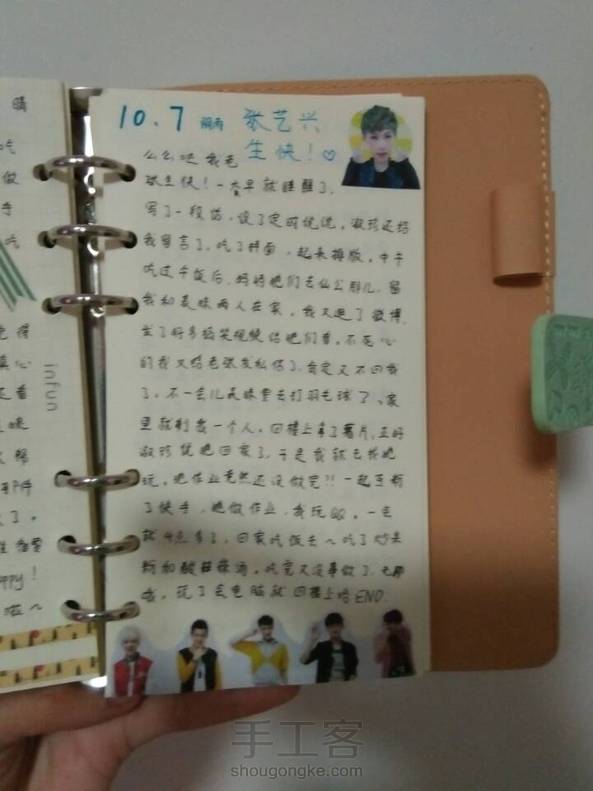 晴
吃
做
手
吃
infun
10.7 张艺兴
生快！♡
么么吧我老
张生快！一大早就睡醒了，
写了一段话，设了定时说说，淑珍还给
我留言了，吃了拌面，起来排版，中午
吃过午饭后，妈妈她们去仙公那儿，留
我和表妹两人在家，我又逛了微博，
发了好多搞笑视频给她们看，不死心
的我又给老张发私信了，肯定又不回我
了，不一会儿表妹要去打羽毛球了，家
里就剩我一个人，回楼上拿了薯片，正好
淑珍说她回家了，于是我就去找她
玩，她作业竟然还没做完!! 一起更新
了快手，她做作业，我玩QQ，一会
就4点多了，回家吃饭去～吃了炒
粉和酸甜，吃完又没事做了，无聊
哦，玩了会电脑就回楼上咯 END.
ppy！
啦～
手工客
shougongke.com